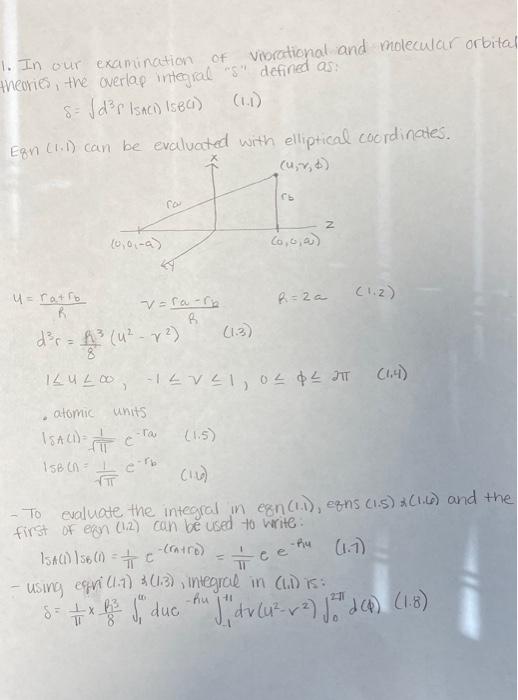 1. In our examination of vibrational and molecular orbital
theories, the overlap integral "s" defined as:
S = ∫d³r 1SA(1) 1SB(1) (1.1)
Eqn (1.1) can be evaluated with elliptical coordinates.
x
(u,v,φ)
ra
rb
z
(0,0,-a)
(0,0,a)
y
u = ra+rb/R v = ra-rb/R R = 2a (1.2)
d³r = R³/8 (u² - v²) (1.3)
1 ≤ u ≤ ∞, -1 ≤ v ≤ 1, 0 ≤ φ ≤ 2π (1.4)
• atomic units
1SA(1) = 1/√π e^-ra (1.5)
1SB(1) = 1/√π e^-rb (1.6)
- To evaluate the integral in eqn (1.1), eqns (1.5) & (1.6) and the
first of eqn (1.2) can be used to write:
1SA(1) 1SB(1) = 1/π e^-(ra+rb) = 1/π e e^-Ru (1.7)
- using eqn (1.7) & (1.3), integral in (1.1) is:
S = 1/π × R³/8 ∫₁^∞ du e^-Ru ∫₋₁^+1 dv (u² - v²) ∫₀^2π d(φ) (1.8)